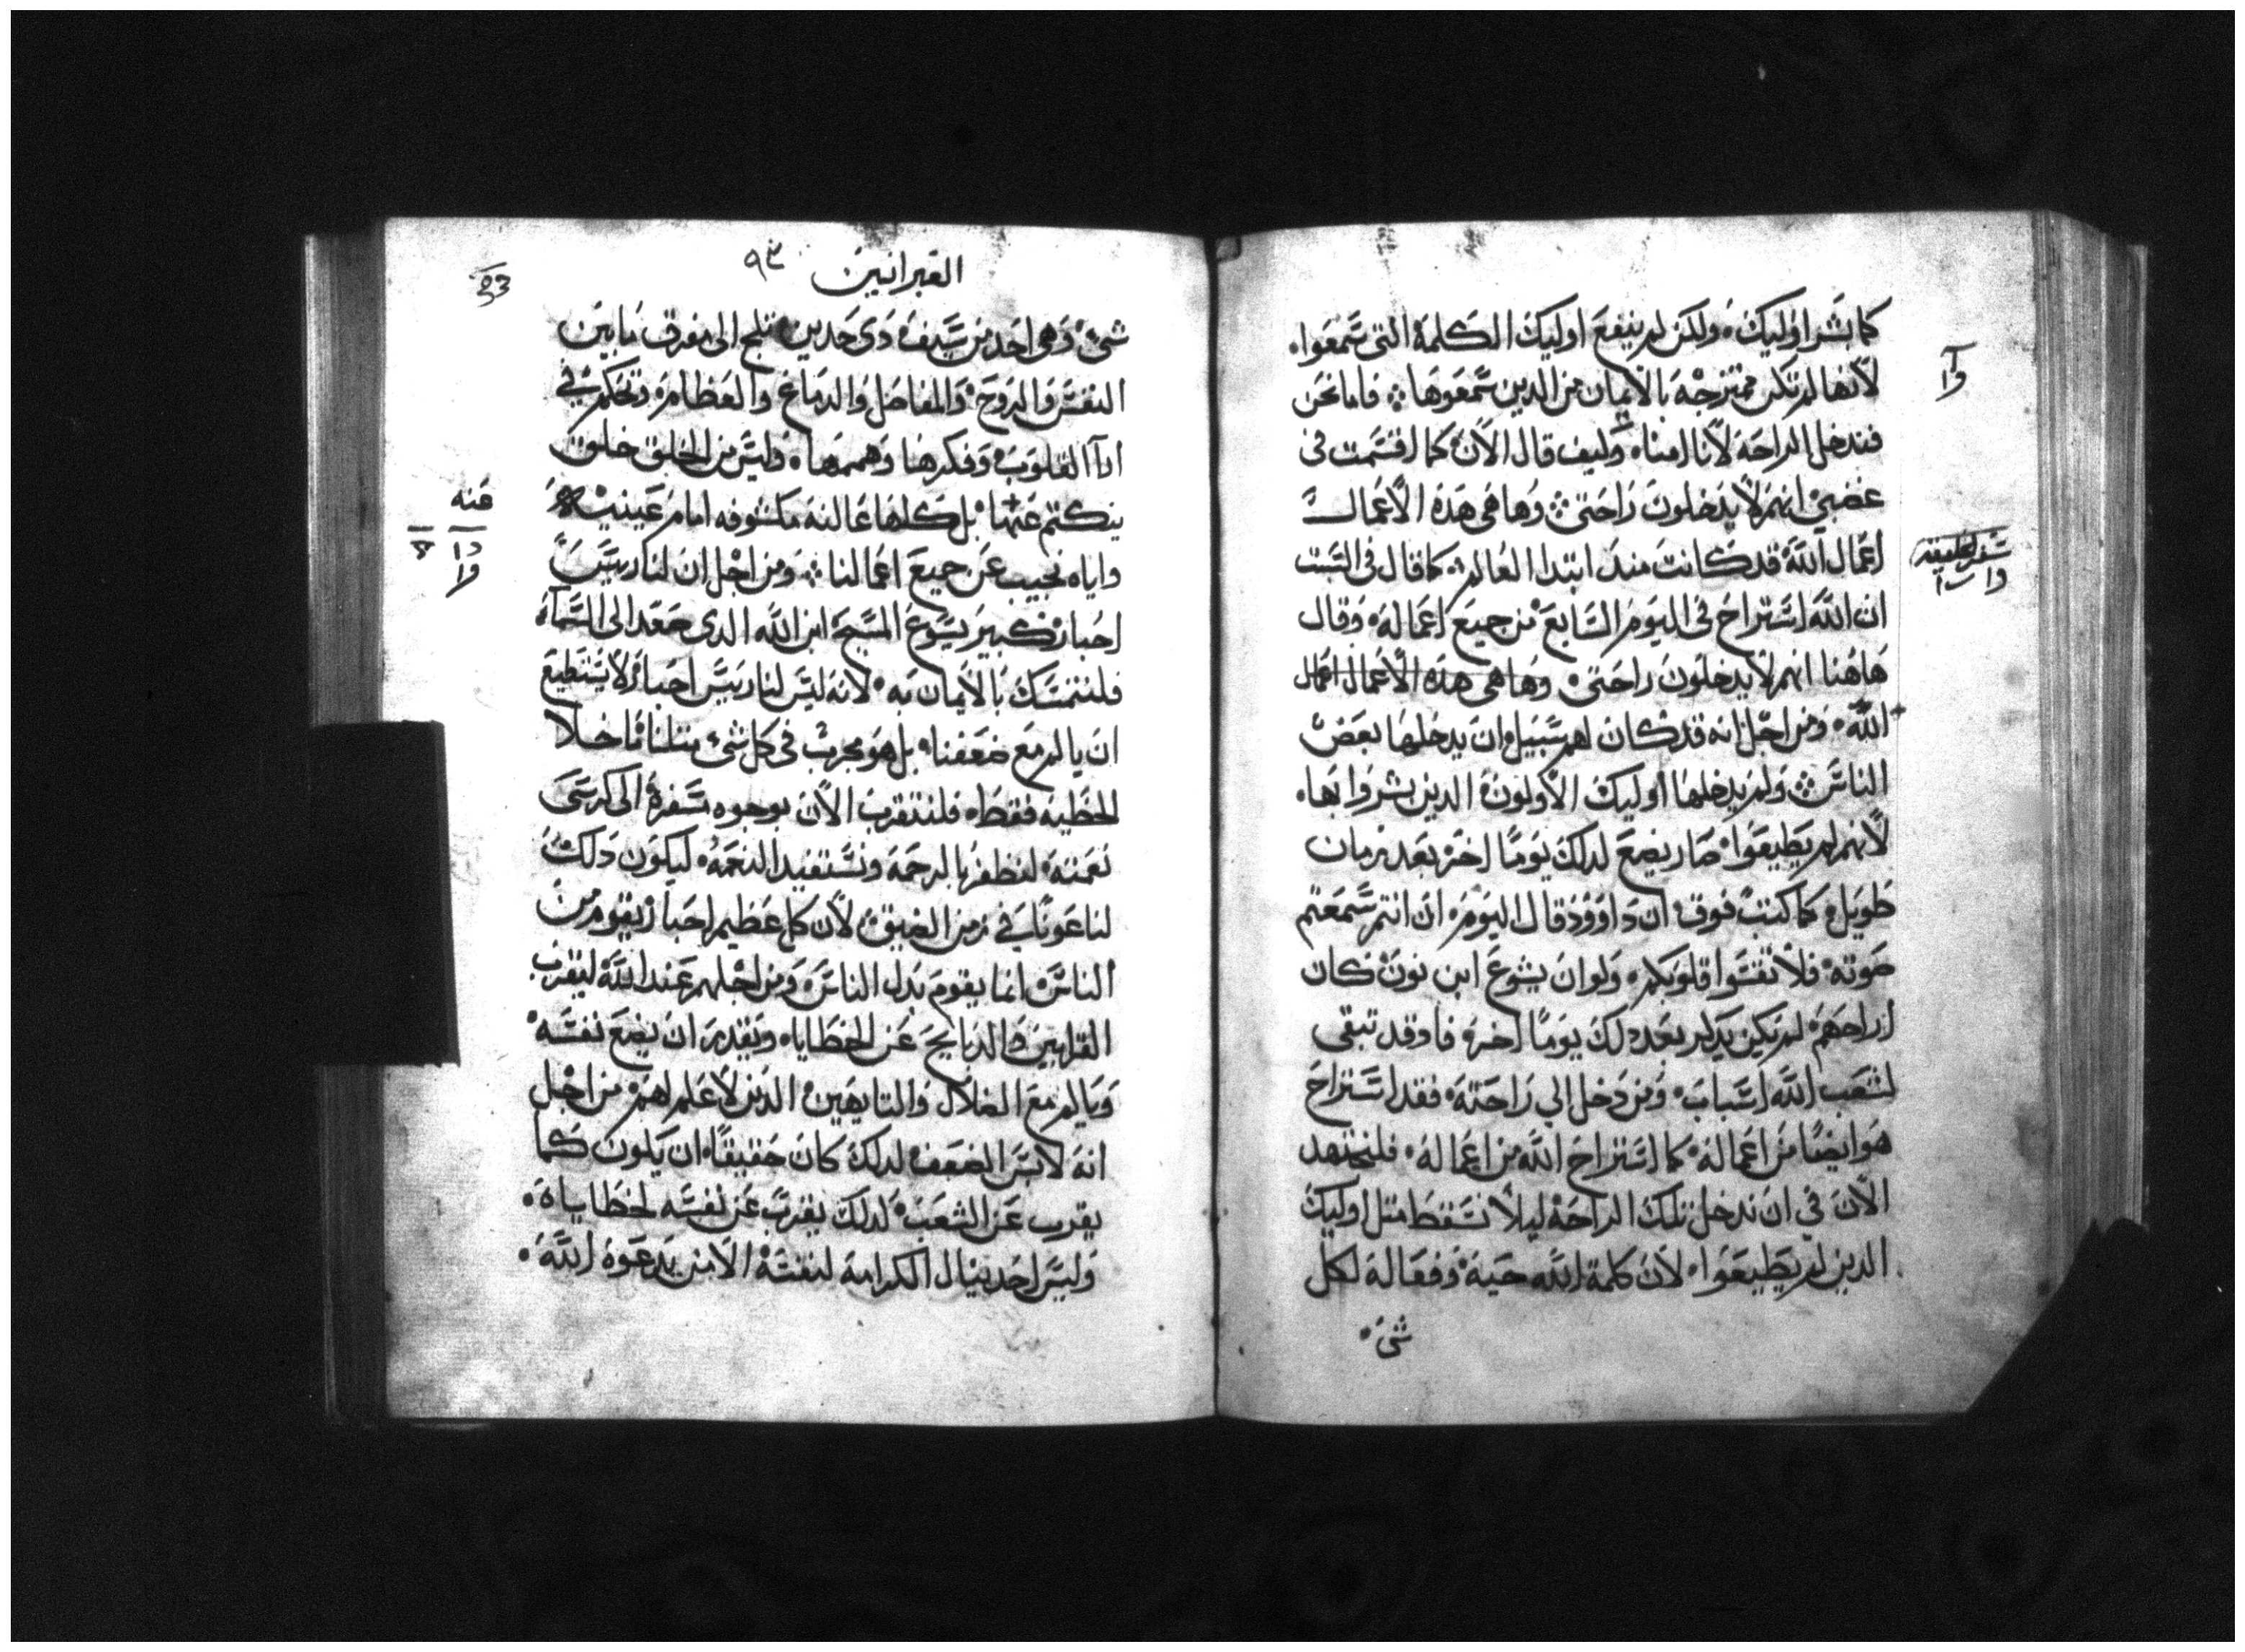 كما بشر اوليك. ولكن لم ينفع اوليك الكلمة التي سمعوا.
لانها لم تكن ممتزجة بالايمان من الدين سمعوها. فاما نحن
فندخل الراحة لانا امنا. وليف قال الان كما اقسمت في
غضبي انهم لا يدخلون راحتي. وها هي هده الاعمال
اعمال الله قد كانت مند ابتدا العالم. كما قال في السبت
ان الله استراح في اليوم السابع من جميع اعماله. وقال
هاهنا انهم لا يدخلون راحتي. وها هي هده الاعمال اعمال
الله. ومن اجل انه قد كان لهم سبيل ان يدخلها بعض
الناس. ولم يدخلها اوليك الاولون الدين بشروا بها.
لانهم لم يطيعوا. صار يضع لدلك يوما اخر بعد زمان
طويل. كما كتب فوق. ان داوود قال اليوم. ان انتم سمعتم
صوته. فلا تقسوا قلوبكم. ولو ان يشوع ابن نون كان
اراحهم. لم يكن يدكر بعد دلك يوما اخر. فاد قد تبقى
لشعب الله اسبات. ومن دخل الي راحته. فقد استراح
هو ايضا من اعماله. كما استراح الله من اعماله. فلنجتهد
الان في ان ندخل تلك الراحة ليلا نسقط متل اوليك
الدين لم يطيعوا. لان كلمة الله حية. وفعالة لكل
شي.
وا
سفر الخليقة
العبرانيين ٩٣
شي. وهي احد من سيف دي حدين. تلج الى مفرق ما بين
النفس والروح. والمفاصل والدماغ والعظام. وتحكم في
ارآ القلوب. وفكرها وهممها. وليس من الخلق خلق
ينكتم عنها. بل كلها عالنه مكشوفه امام عينيه
واياه نجيب عن جميع اعمالنا. ومن اجل ان لنا رييس
احبار كبير يسوع المسيح ابن الله الدي صعد الى السماء
فلنتمسك بالايمان به. لانه ليس لنا رييس احبار لا يستطيع
ان يالم مع ضعفنا. بل هو مجرب في كل شي متلنا ما خلا
الخطيه فقط. فلنتقرب الان بوجوه سفرة الى كرسي
نعمته. لنظفر بالرحمة ونستفيد النعمة. ليكون دلك
لنا عونا في زمن الضيق. لان كل عظيم احبار يقوم من
الناس. انما يقوم بدل الناس. ومن اجلهم عند الله ليقرب
القرابين والدبايح عن الخطايا. ويقدر ان يضع نفسه
ويالم مع الضلال والتايهين. الدين لا علم لهم. من اجل
انه لابس الضعف لدلك كان حقيقا. ان يكون كما
يقرب عن الشعب. لدلك يقرب عن نفسه لخطاياه.
وليس احد ينال الكرامة لنفسه الا من يدعوه الله.
عنه